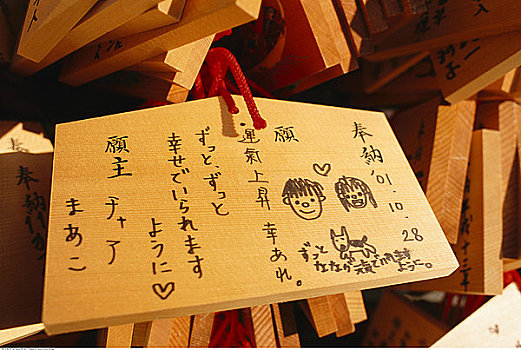 奉納 '01.10.28
願
運氣上昇 幸あれ。
ずっと
ように。
ずっと、ずっと
幸せでいられます
ように♡
願主 チャア
まあこ
奉納